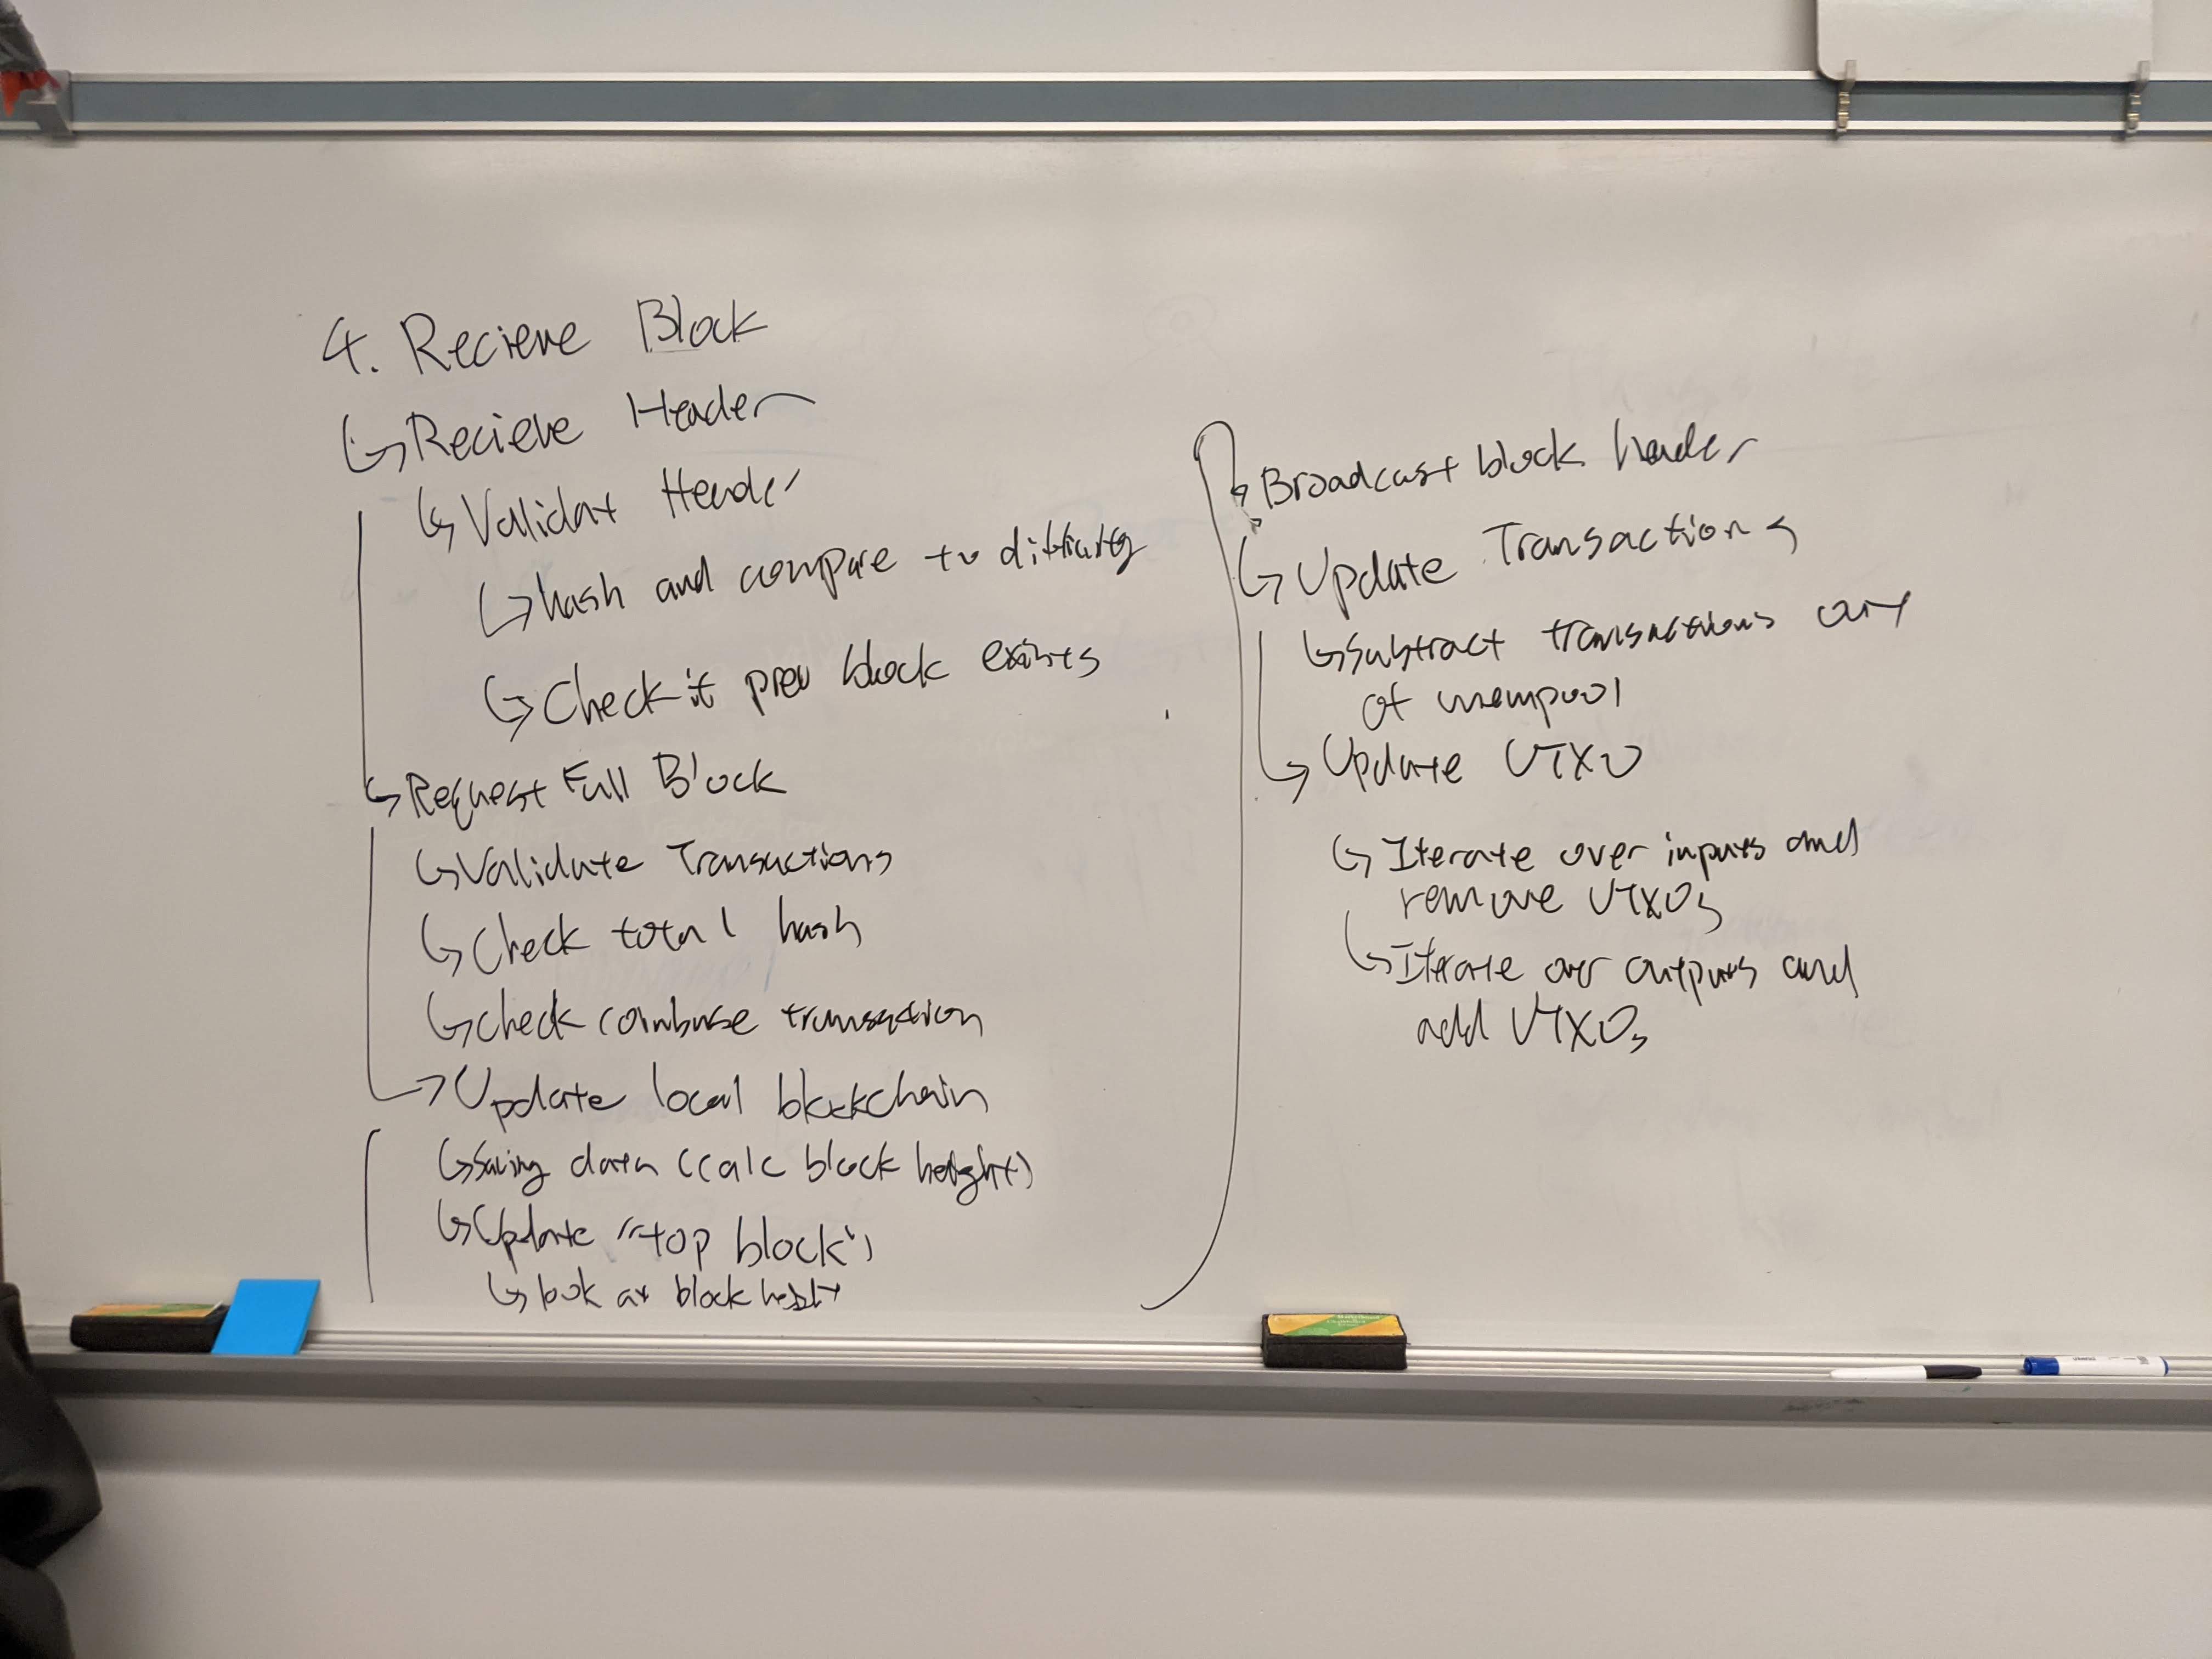 4. Recieve Block
Recieve Header
Validat Header
hash and compare to difficulty
Check if prev block exists
Request Full Block
Validate Transactions
Check total hash
check coinbase transaction
Update local blockchain
saving data (calc block height)
Update "top block"
look at block height
Broadcast block header
Update Transactions
subtract transactions out
of mempool
Update UTXO
Iterate over inputs and
remove UTXOs
Iterate over outputs and
add UTXOs